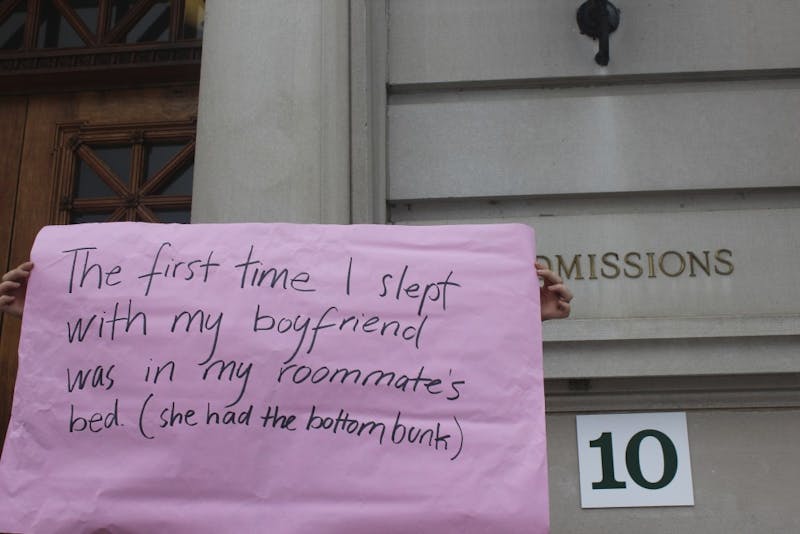 The first time I slept
with my boyfriend
was in my roommate's
bed. (she had the bottom bunk)
DMISSIONS
10